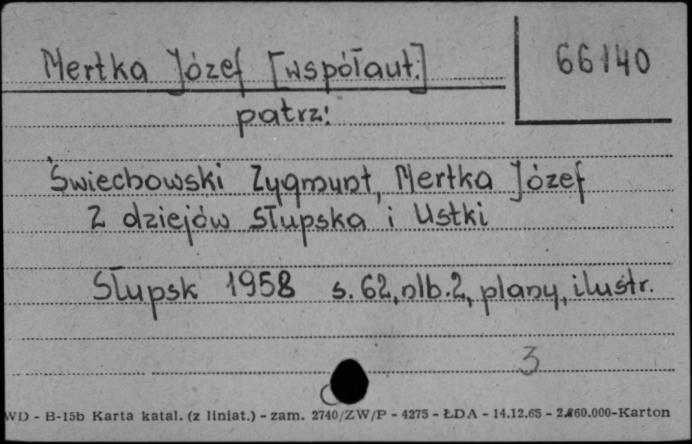 Mertka Józef [współaut.]
66140
patrz:
Świechowski Zygmunt, Mertka Józef
Z dziejów Słupska i Ustki
Słupsk 1958 s. 62, nlb. 2, plany, ilustr.
3
WD - B-15b Karta katal. (z liniat.) - zam. 2740/ZW/P - 4275 - ŁDA - 14.12.65 - 2.260.000-Karton